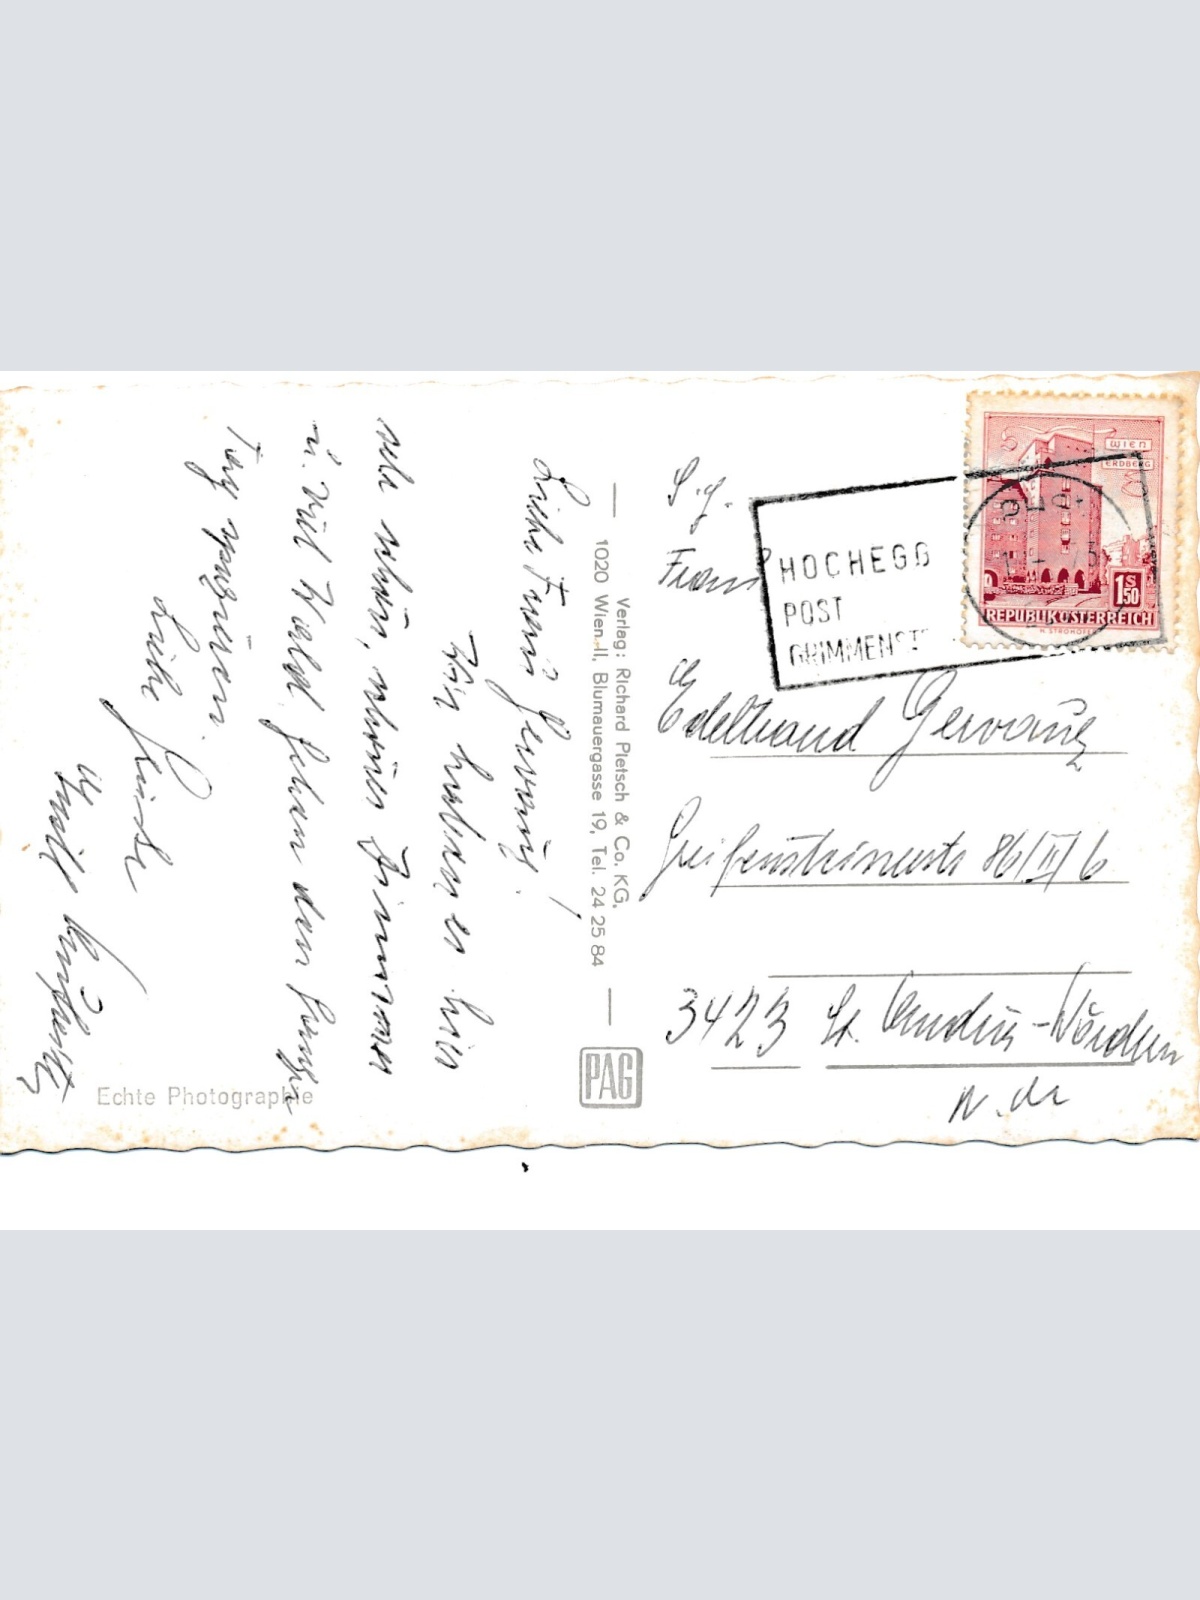 Liebe Frau Gervautz!
Wir haben es hier
sehr schön, schönes Zimmer
u. viel Wald
Tag spazieren.
Liebe Grüße
Verlag: Richard Pietsch & Co. KG,
1020 Wien II, Blumauergasse 19, Tel. 24 25 84
PAG
Echte Photographie
S. g.
Frau
Edeltraud Gervautz
Greifensteinerstr. 86/II/6
3423 St. Andrä-Wördern
N. Ö.
HOCHEGG
POST
GRIMMENST
WIEN
ERDBERG
1 S 50
REPUBLIK ÖSTERREICH